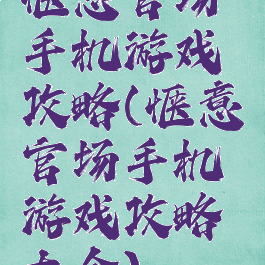 惬意官场
手机游戏
攻略(惬意
官场手机
游戏攻略
大全)